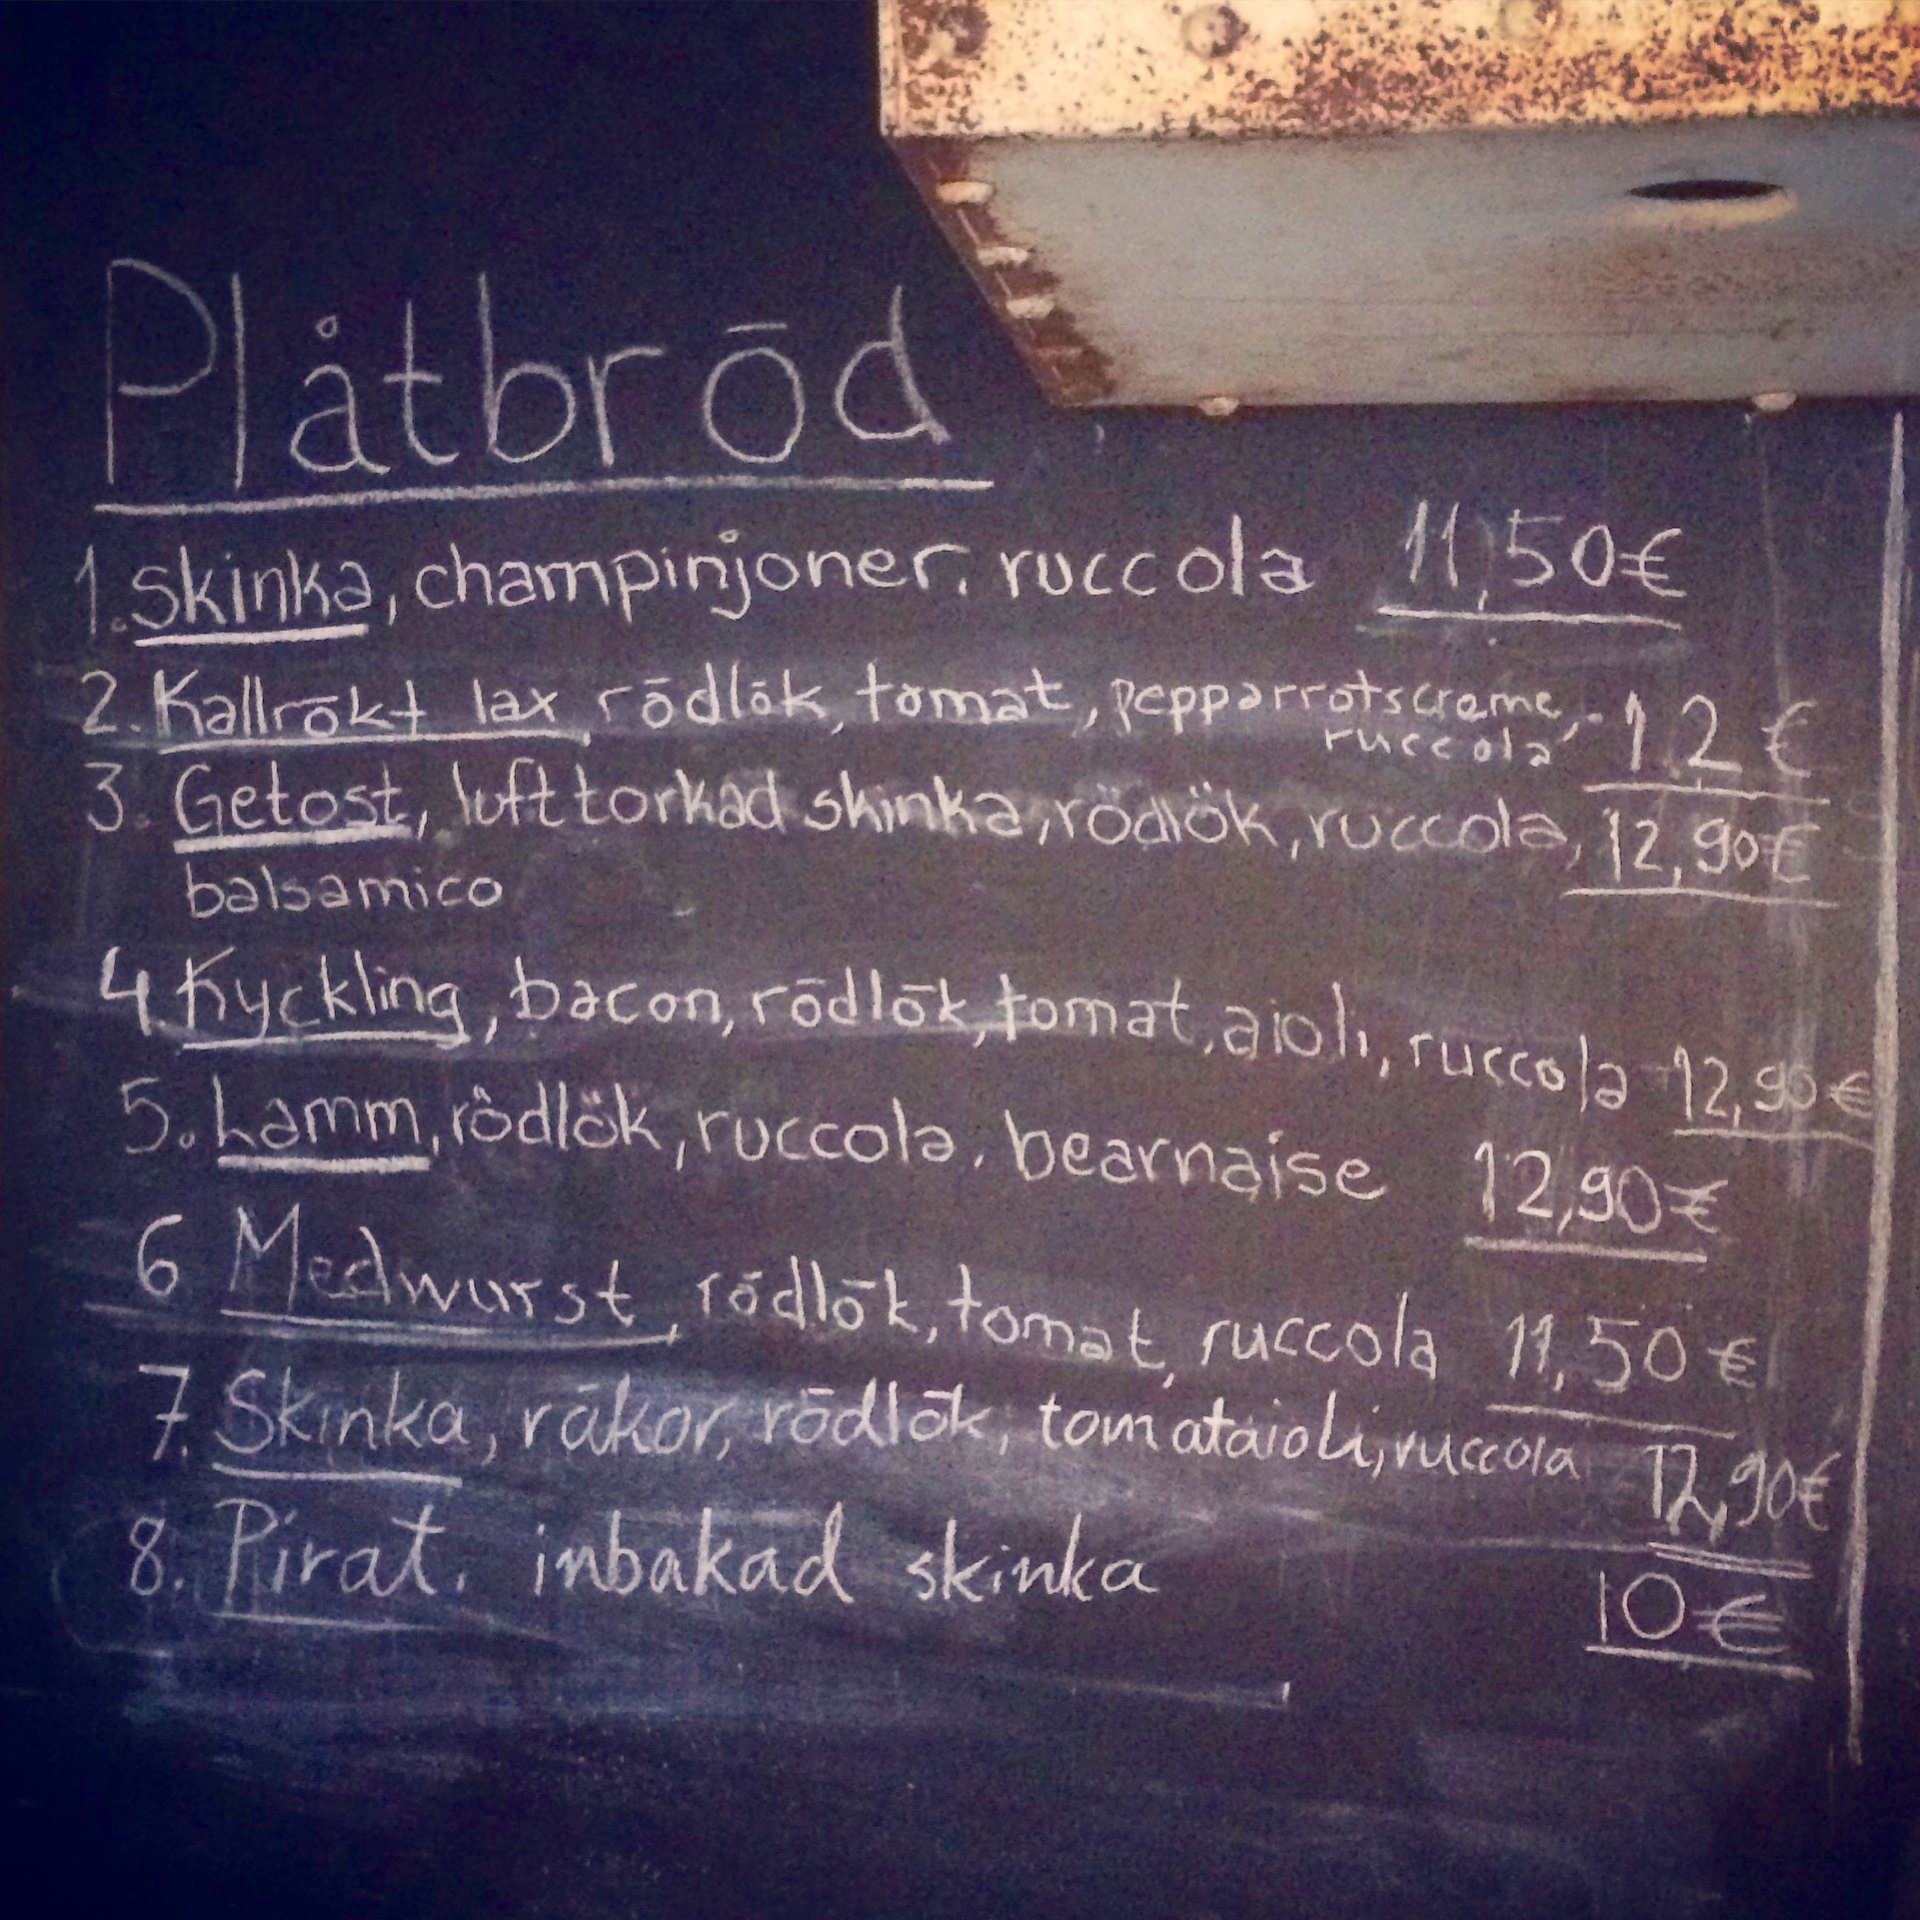 Plåtbröd
1. Skinka, champinjoner, ruccola 11,50€
2. Kallrökt lax, rödlök, tomat, pepparrotscreme, ruccola 12 €
3. Getost, lufttorkad skinka, rödlök, ruccola, 12,90€
balsamico
4. Kyckling, bacon, rödlök, tomat, aioli, ruccola 12,90€
5. Lamm, rödlök, ruccola, bearnaise 12,90€
6 Medwurst, rödlök, tomat, ruccola 11,50 €
7. Skinka, räkor, rödlök, tomataioli, ruccola 12,90€
8. Pirat. inbakad skinka 10€